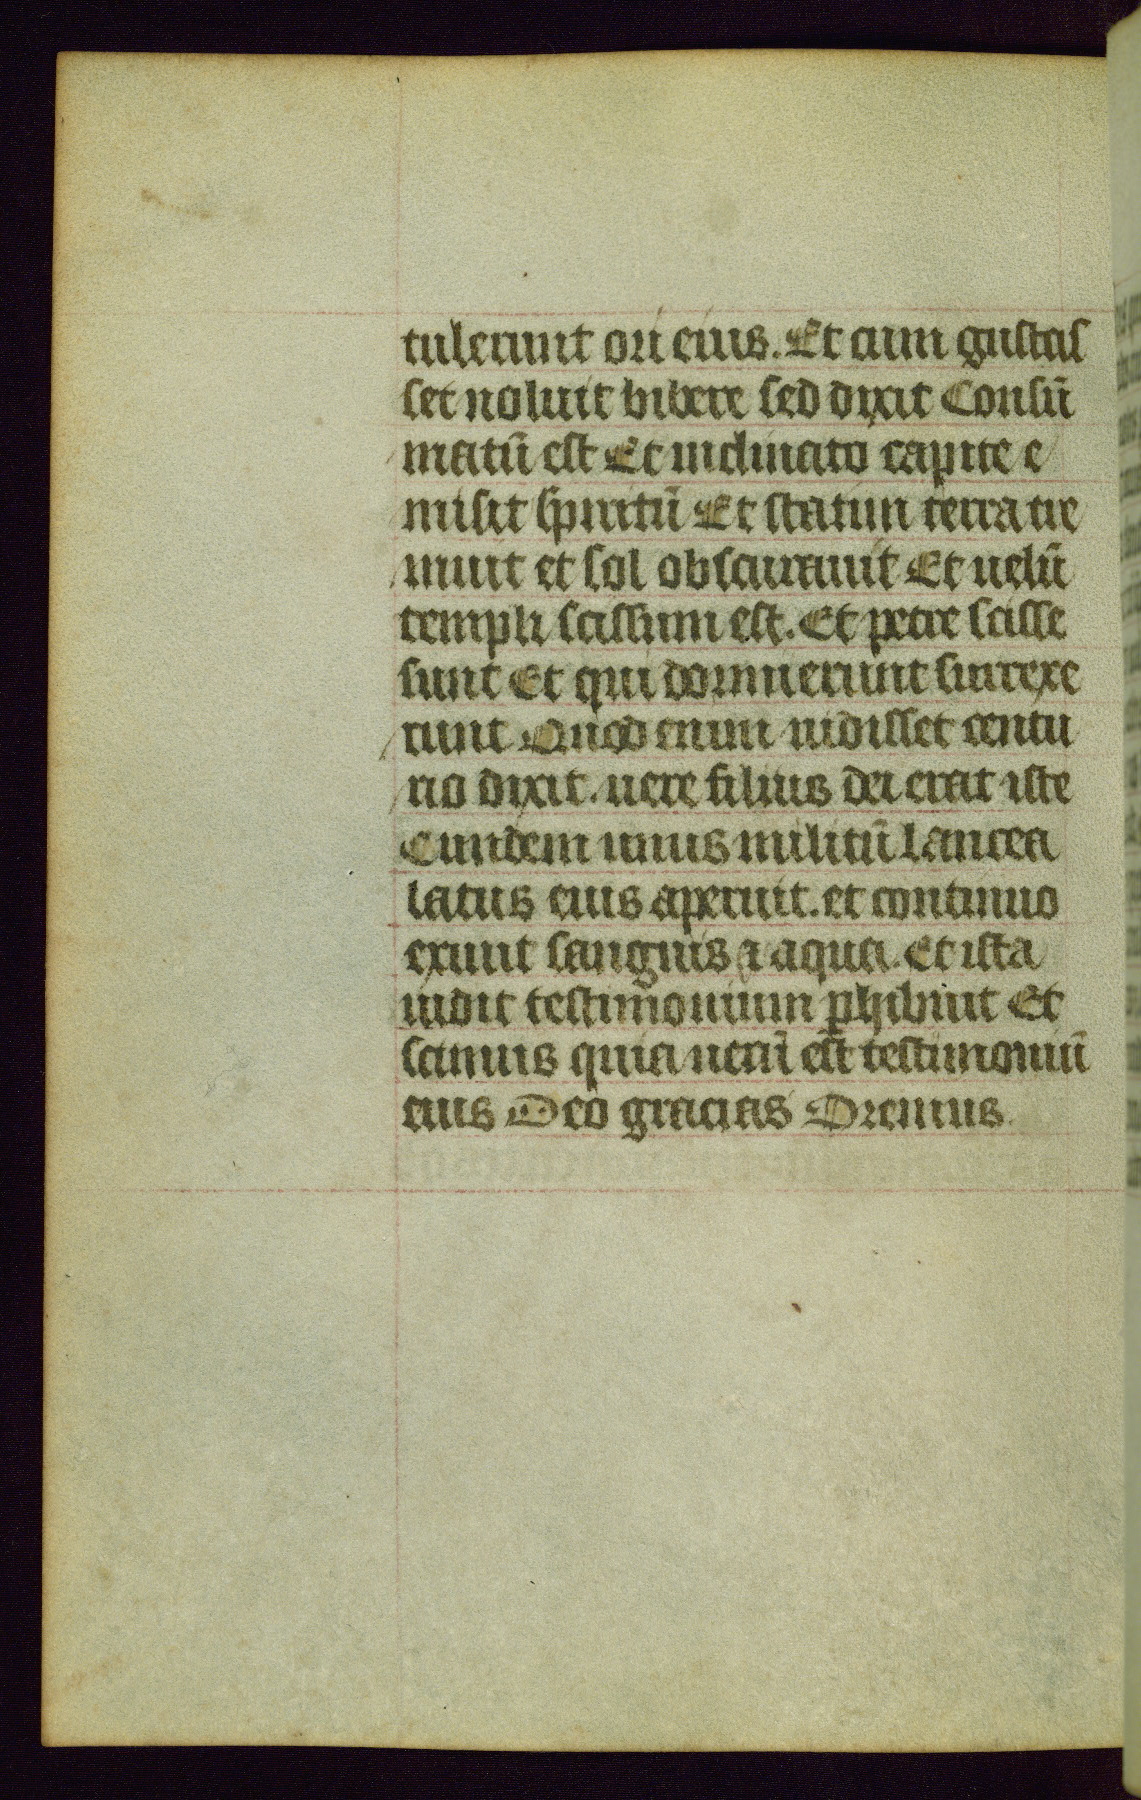 tulerunt ori eius. Et cum gustas
set noluit bibere sed dixit Consū
matū est Et inclinato capite e
misit sp̄iritū Et statim terra tre
muit et sol obscurauit Et uelū
templi scissum est. Et petre scisse
sunt Et qui dormierunt surrexe
runt Quod enim uidisset centu
rio dixit. uere filius dei erat iste
Eundem unus militū lancea
latus eius aperuit. et continuo
exiuit sanguis ⁊ aqua. Et ista
uidit testimonium ꝑhibuit Et
scimus quia uerū est testimoniū
eius Deo gracias Oremus